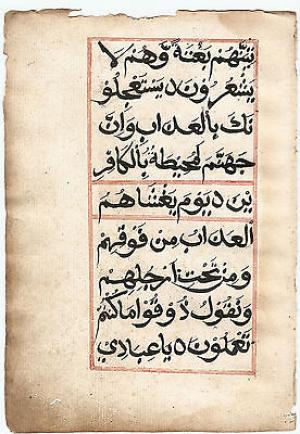 يَنَّهُمْ بَغْتَةً وَّهُمْ لَا
يَشْعُرُونَ ه يَسْتَعْجِلُو
نَكَ بِالْعَذَابِ وَإِنَّ
جَهَنَّمَ لَمُحِيطَةٌ بِالْكَافِرِ
ينَ ه يَوْمَ يَغْشَاهُمُ
الْعَذَابُ مِن فَوْقِهِمْ
وَمِن تَحْتِ أَرْجُلِهِمْ
وَنَقُولُ ذُوقُوا مَا كُنتُمْ
تَعْمَلُونَ ه يَا عِبَادِيَ